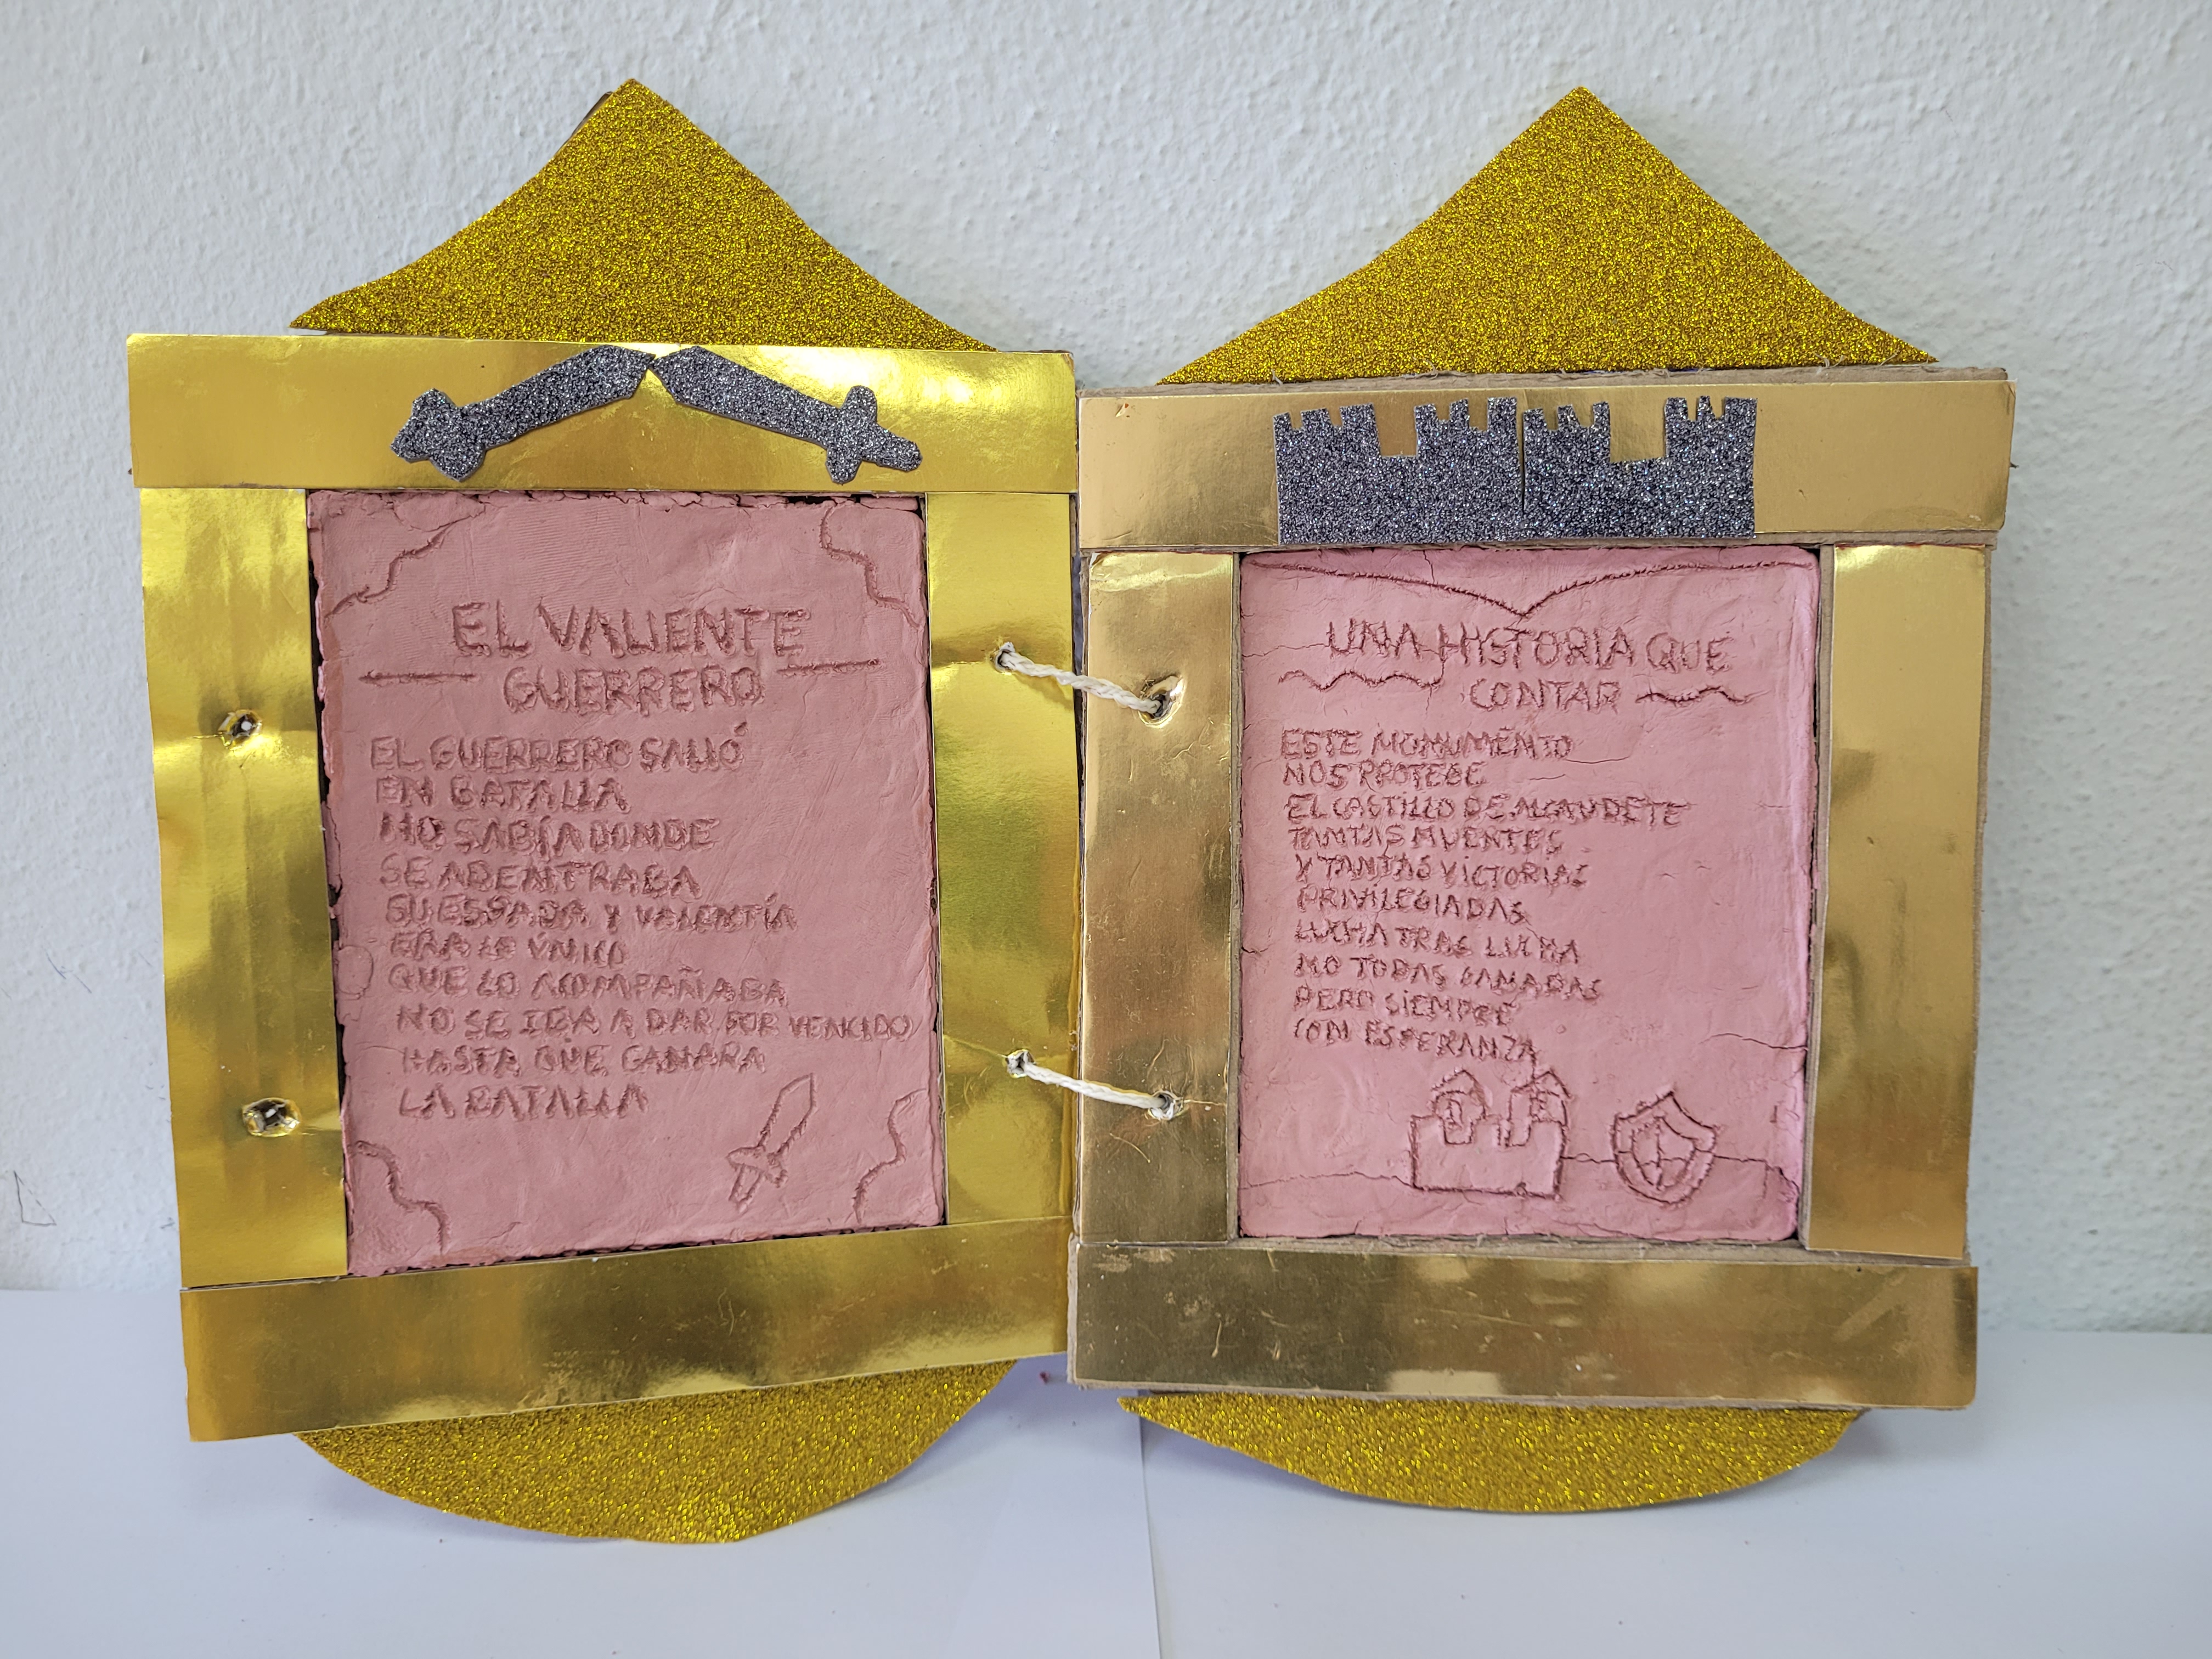 EL VALIENTE
GUERRERO
EL GUERRERO SALIÓ
EN BATALLA
NO SABÍA DONDE
SE ADENTRABA
SU ESPADA Y VALENTÍA
ERA LO ÚNICO
QUE LO ACOMPAÑABA
NO SE IBA A DAR POR VENCIDO
HASTA QUE GANARA
LA BATALLA
UNA HISTORIA QUE
CONTAR
ESTE MONUMENTO
NOS PROTEGE
EL CASTILLO DE ALCAUDETE
TANTAS MUERTES
Y TANTAS VICTORIAS
PRIVILEGIADAS
LUCHA TRAS LUCHA
NO TODAS GANADAS
PERO SIEMPRE
CON ESPERANZA